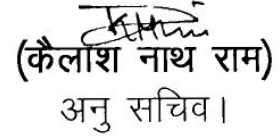 (कैलाश नाथ राम)
अनु सचिव।